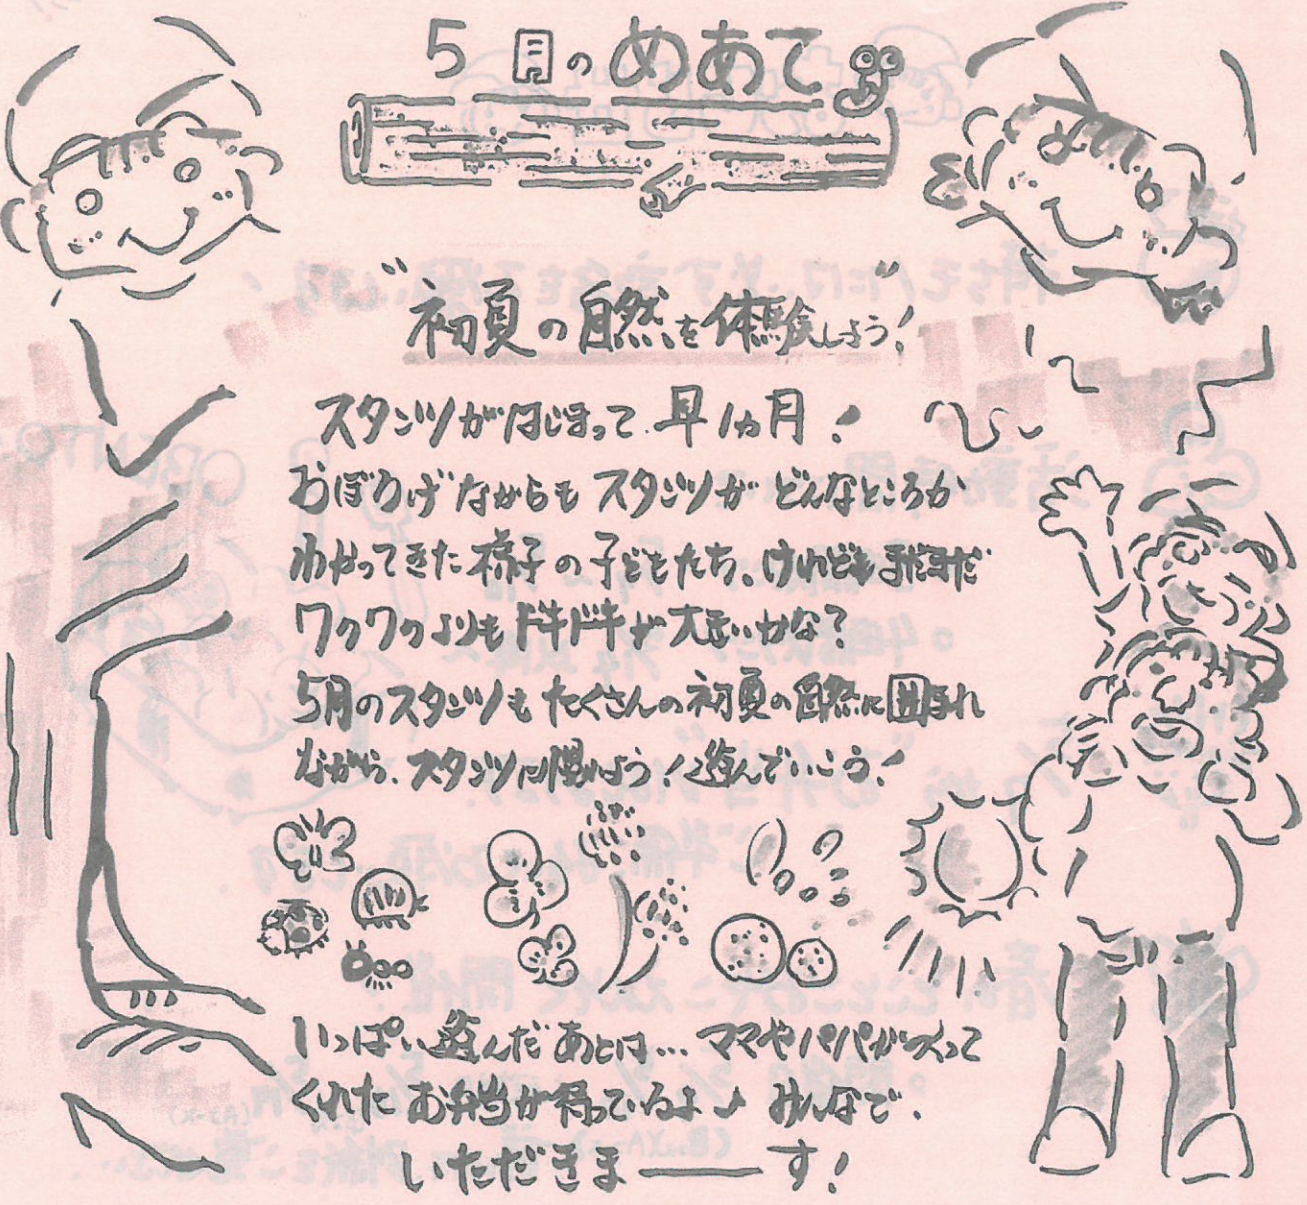 5月のめあて
"初夏の自然を体験しよう!"
スタンツがはじまって早1ヵ月!
おぼろげながらもスタンツがどんなところか
わかってきた様子の子どもたち、けれどもまだまだ
ワクワクよりもドキドキが大きいかな?
5月のスタンツもたくさんの初夏の自然に囲まれ
ながら、スタンツに慣れよう!遊んでいこう!
いっぱい遊んだあとは…ママやパパがつくって
くれたお弁当が待っているよ♪みんなで、
いただきま――す!